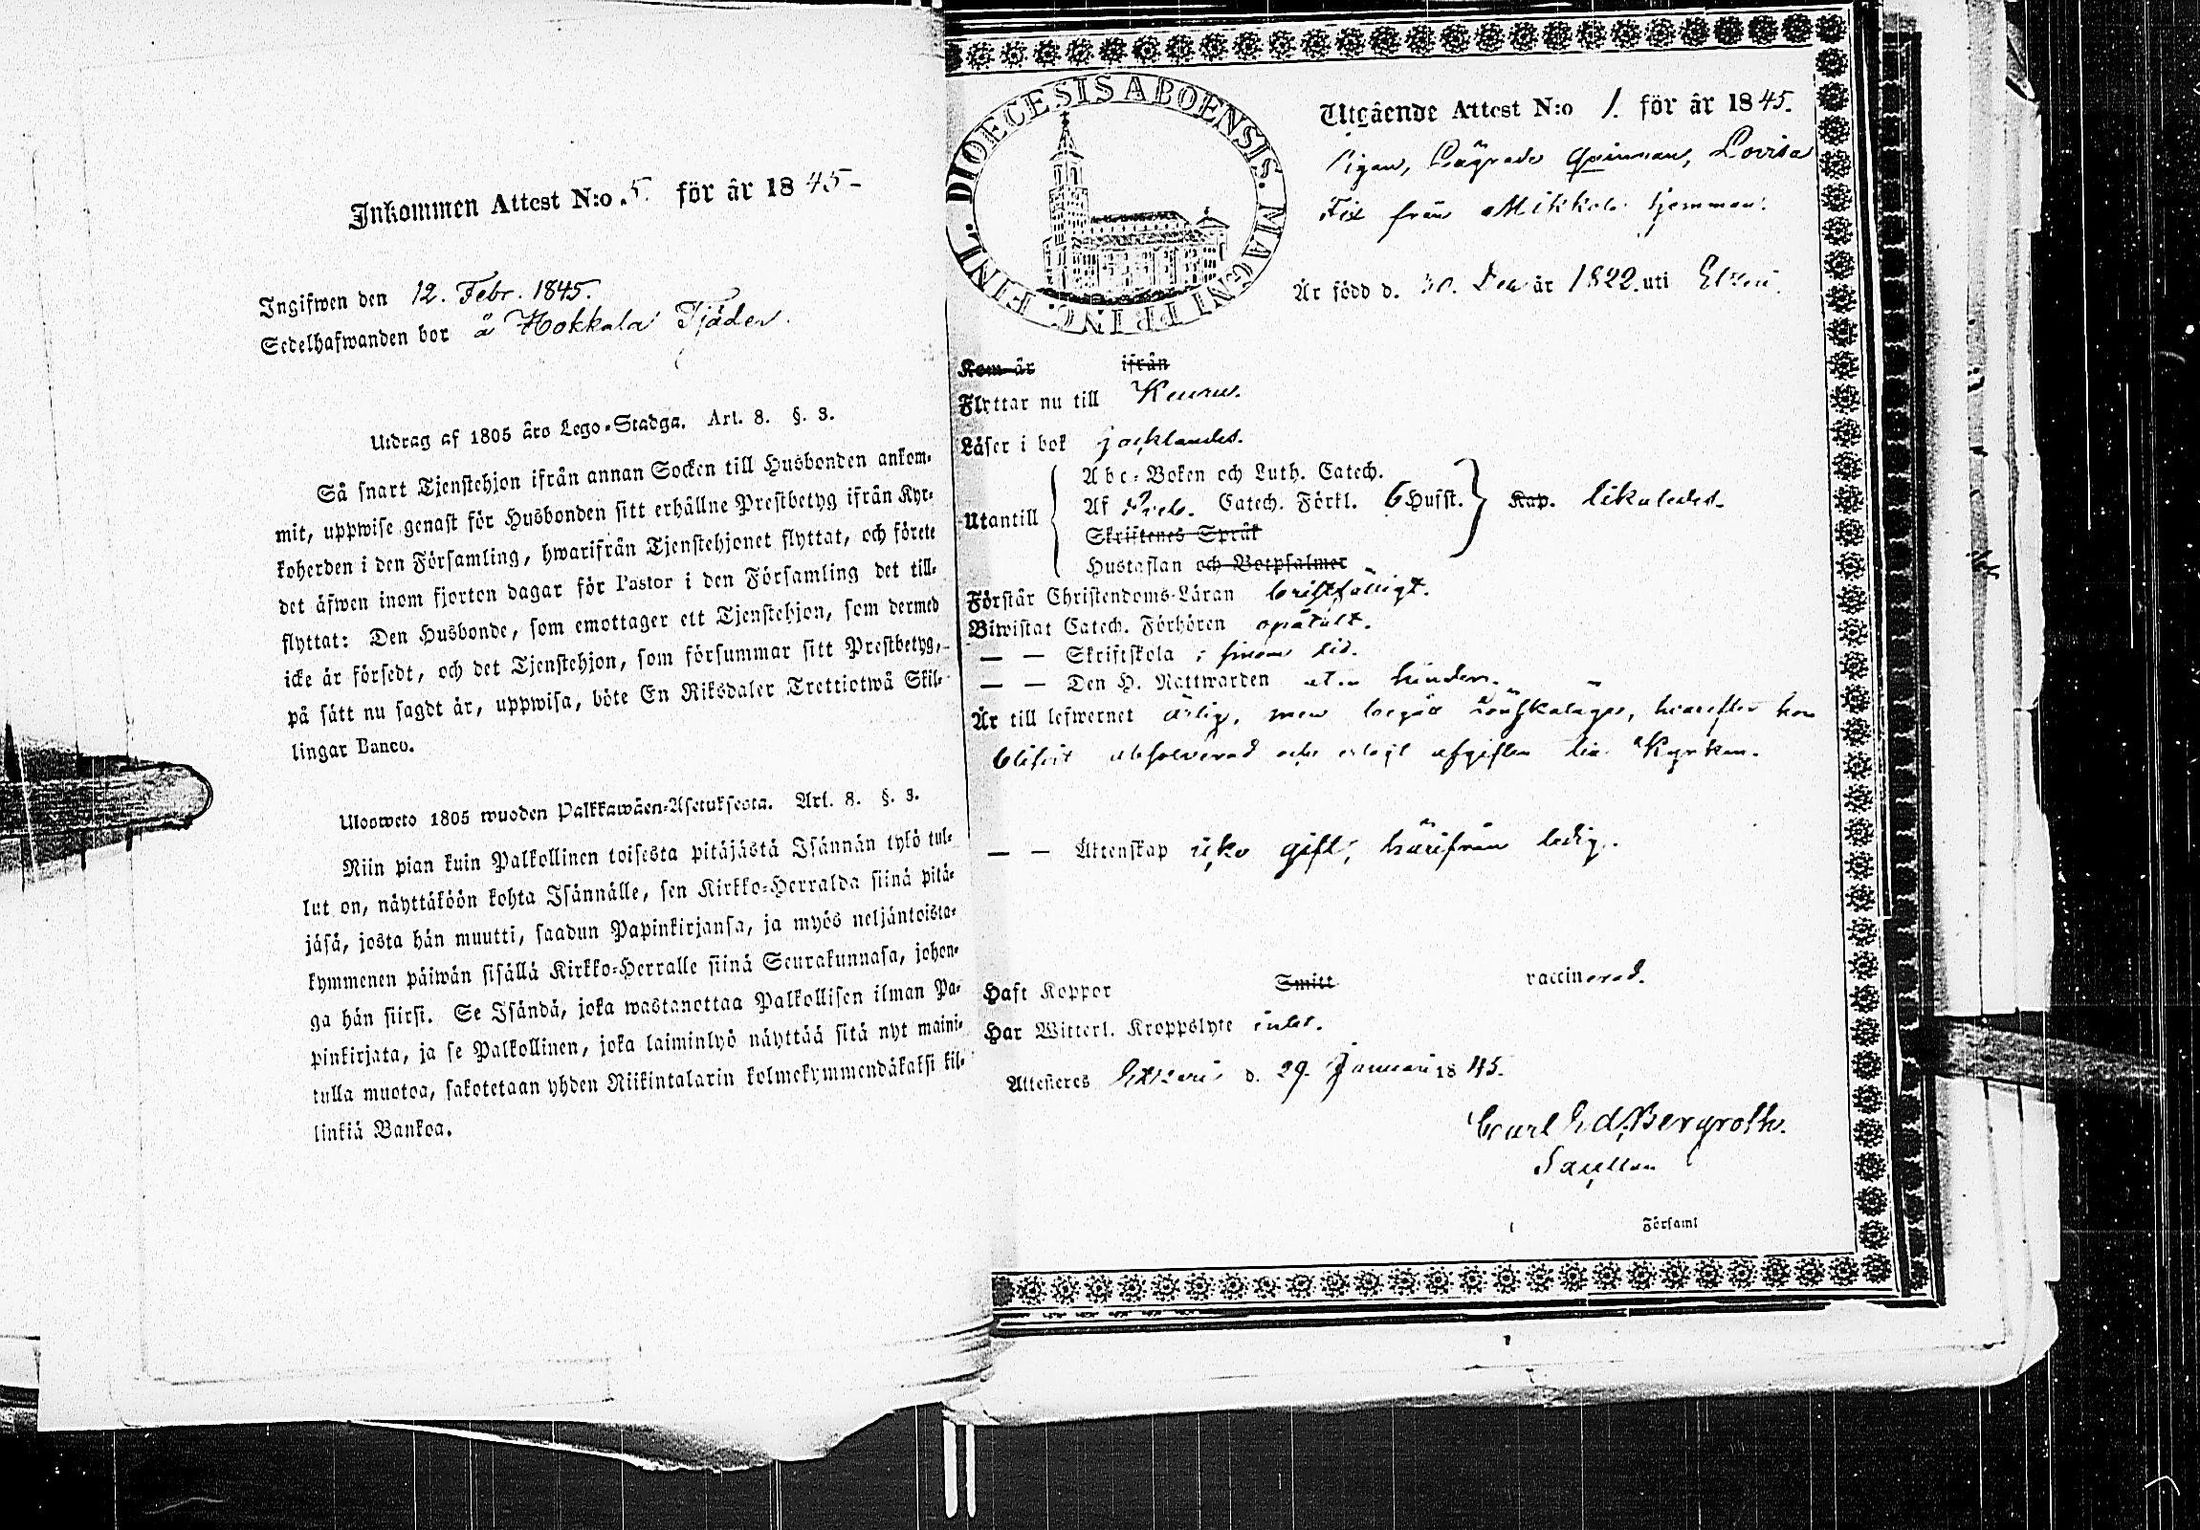 Inkommen Attest N:o 5. för år 1845-
Ingifwen den 12. Febr. 1845.
Sedelhafwanden bor å Hokkala Tjäder.
Utdrag af 1805 års Lego-Stadga. Art. 8. §. 3.
Så snart Tjenstehjon ifrån annan Socken till Husbonden ankom-
mit, uppwise genast för Husbonden sitt erhållne Prestbetyg ifrån Kyr-
koherden i den Församling, hwarifrån Tjenstehjonet flyttat, och förete
det äfwen inom fjorton dagar för Pastor i den Församling det till-
flyttat: Den Husbonde, som emottager ett Tjenstehjon, som dermed
icke är försedt, och det Tjenstehjon, som försummar sitt Prestbetyg,
på sätt nu sagdt är, uppwisa, böte En Riksdaler Trettiotwå Skil-
lingar Banco.
Ulosweto 1805 wuoden Palkkawäen-Asetuksesta. Art. 8. §. 3.
Niin pian kuin Palkollinen toisesta pitäjästä Isännän tykö tul-
lut on, näyttäköön kohta Isännälle, sen Kirkko-Herralda siinä pitä-
jäsä, josta hän muutti, saadun Papinkirjansa, ja myös neljäntoista-
kymmenen päiwän sisällä Kirkko-Herralle siinä Seurakunnasa, johon-
ga hän siirsi. Se Isändä, joka wastanottaa Palkollisen ilman Pa-
pinkirjata, ja se Palkollinen, joka laiminlyö näyttää sitä nyt maini-
tulla muotoa, sakotetaan yhden Riikintalarin kolmekymmendäkaksi kil-
linkiä Bankoa.
FINL. DIOECESIS ABOENSIS. MAGNI PRINC.
Utgående Attest N:o 1. för år 1845.
Pigan, Lägrade qvinnan, Lovisa
Fix från Mikkola hemman.
Är född d. 30. Dec år 1822. uti Etseri.
Kom år ifrån
Flyttar nu till Keuru.
Läser i bok försklandes.
Abc-Boken och Luth. Catech.
Utantill Af Cateh. Förkl. 6 Husst. Kap. likaledes.
Skriftenes Språk
Hustaflan och Botpsalmer
Förstår Christendoms-Läran bristfälligt.
Biwistat Catech. Förhören opåtalt.
— — Skriftskola i sinom tid.
— — Den H. Nattwarden utan hinder.
Är till lefwernet ärlig, men begått Lönskaläger, hvarefter hon
blifvit absolverad och erlagt afgiften till Kyrkan.
— — Äktenskap icke gift; härifrån ledig.
Haft Koppor Smitt vaccinerad.
Har Witterl. Kroppslyte intet.
Attesteres Etseri d. 29. Januari 1845.
Carl Ed. Bergroth.
Sacellan
i Församl